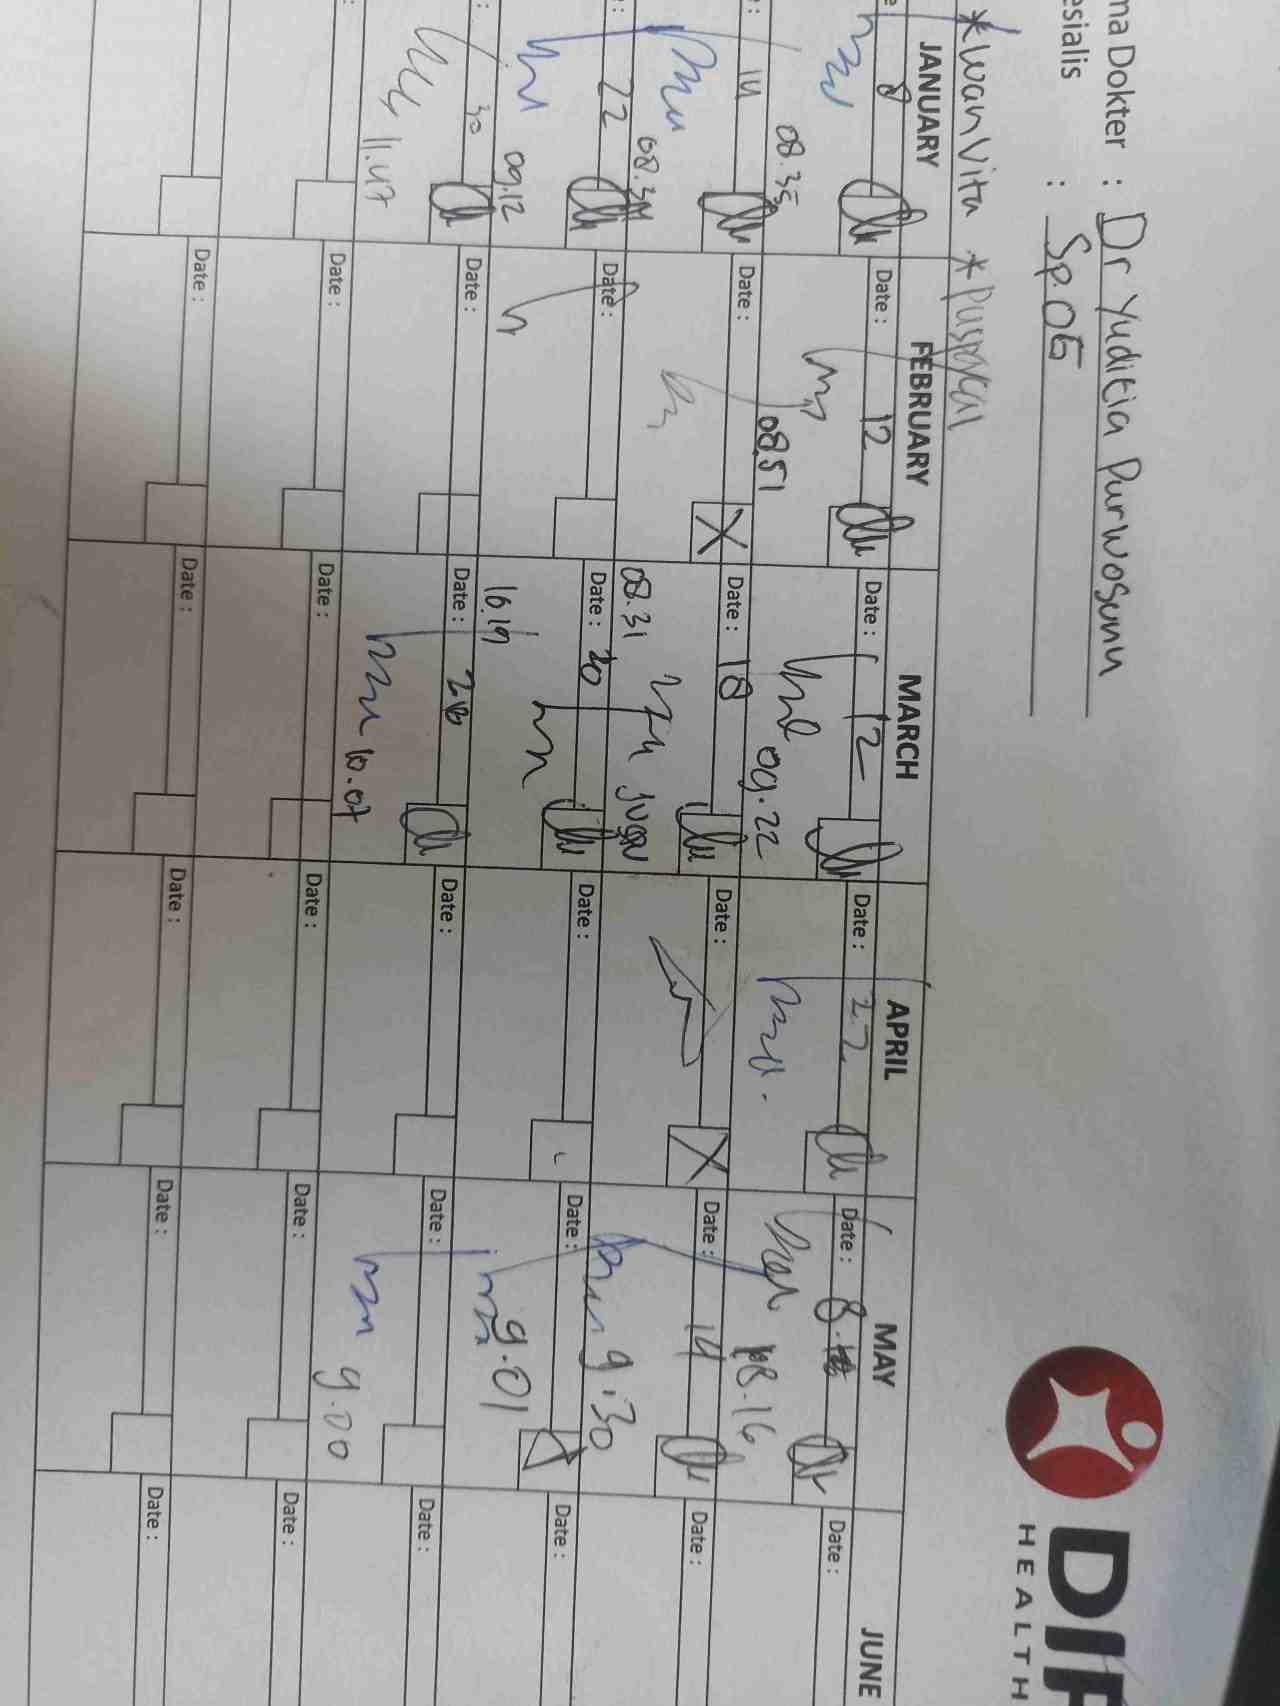 ma Dokter : Dr Yuditia Purwosunu
esialis : Sp.OG
DI
HEALTH
*Wanvita *Puspayal
JANUARY FEBRUARY MARCH APRIL MAY JUNE
8 Date : 12 Date : 12 Date : 22 Date : 8 Date :
08.35 08.51 09.22 08.16
14 Date : Date : 18 Date : Date : 14 Date :
08.34 08.31 Juga 9.30
22 Date : Date : 20 Date : Date : Date :
09.12 16.19 9.01
30 Date : Date : 26 Date : Date : Date :
11.47 10.07 9.00
Date : Date : Date : Date : Date :
Date : Date : Date : Date : Date :